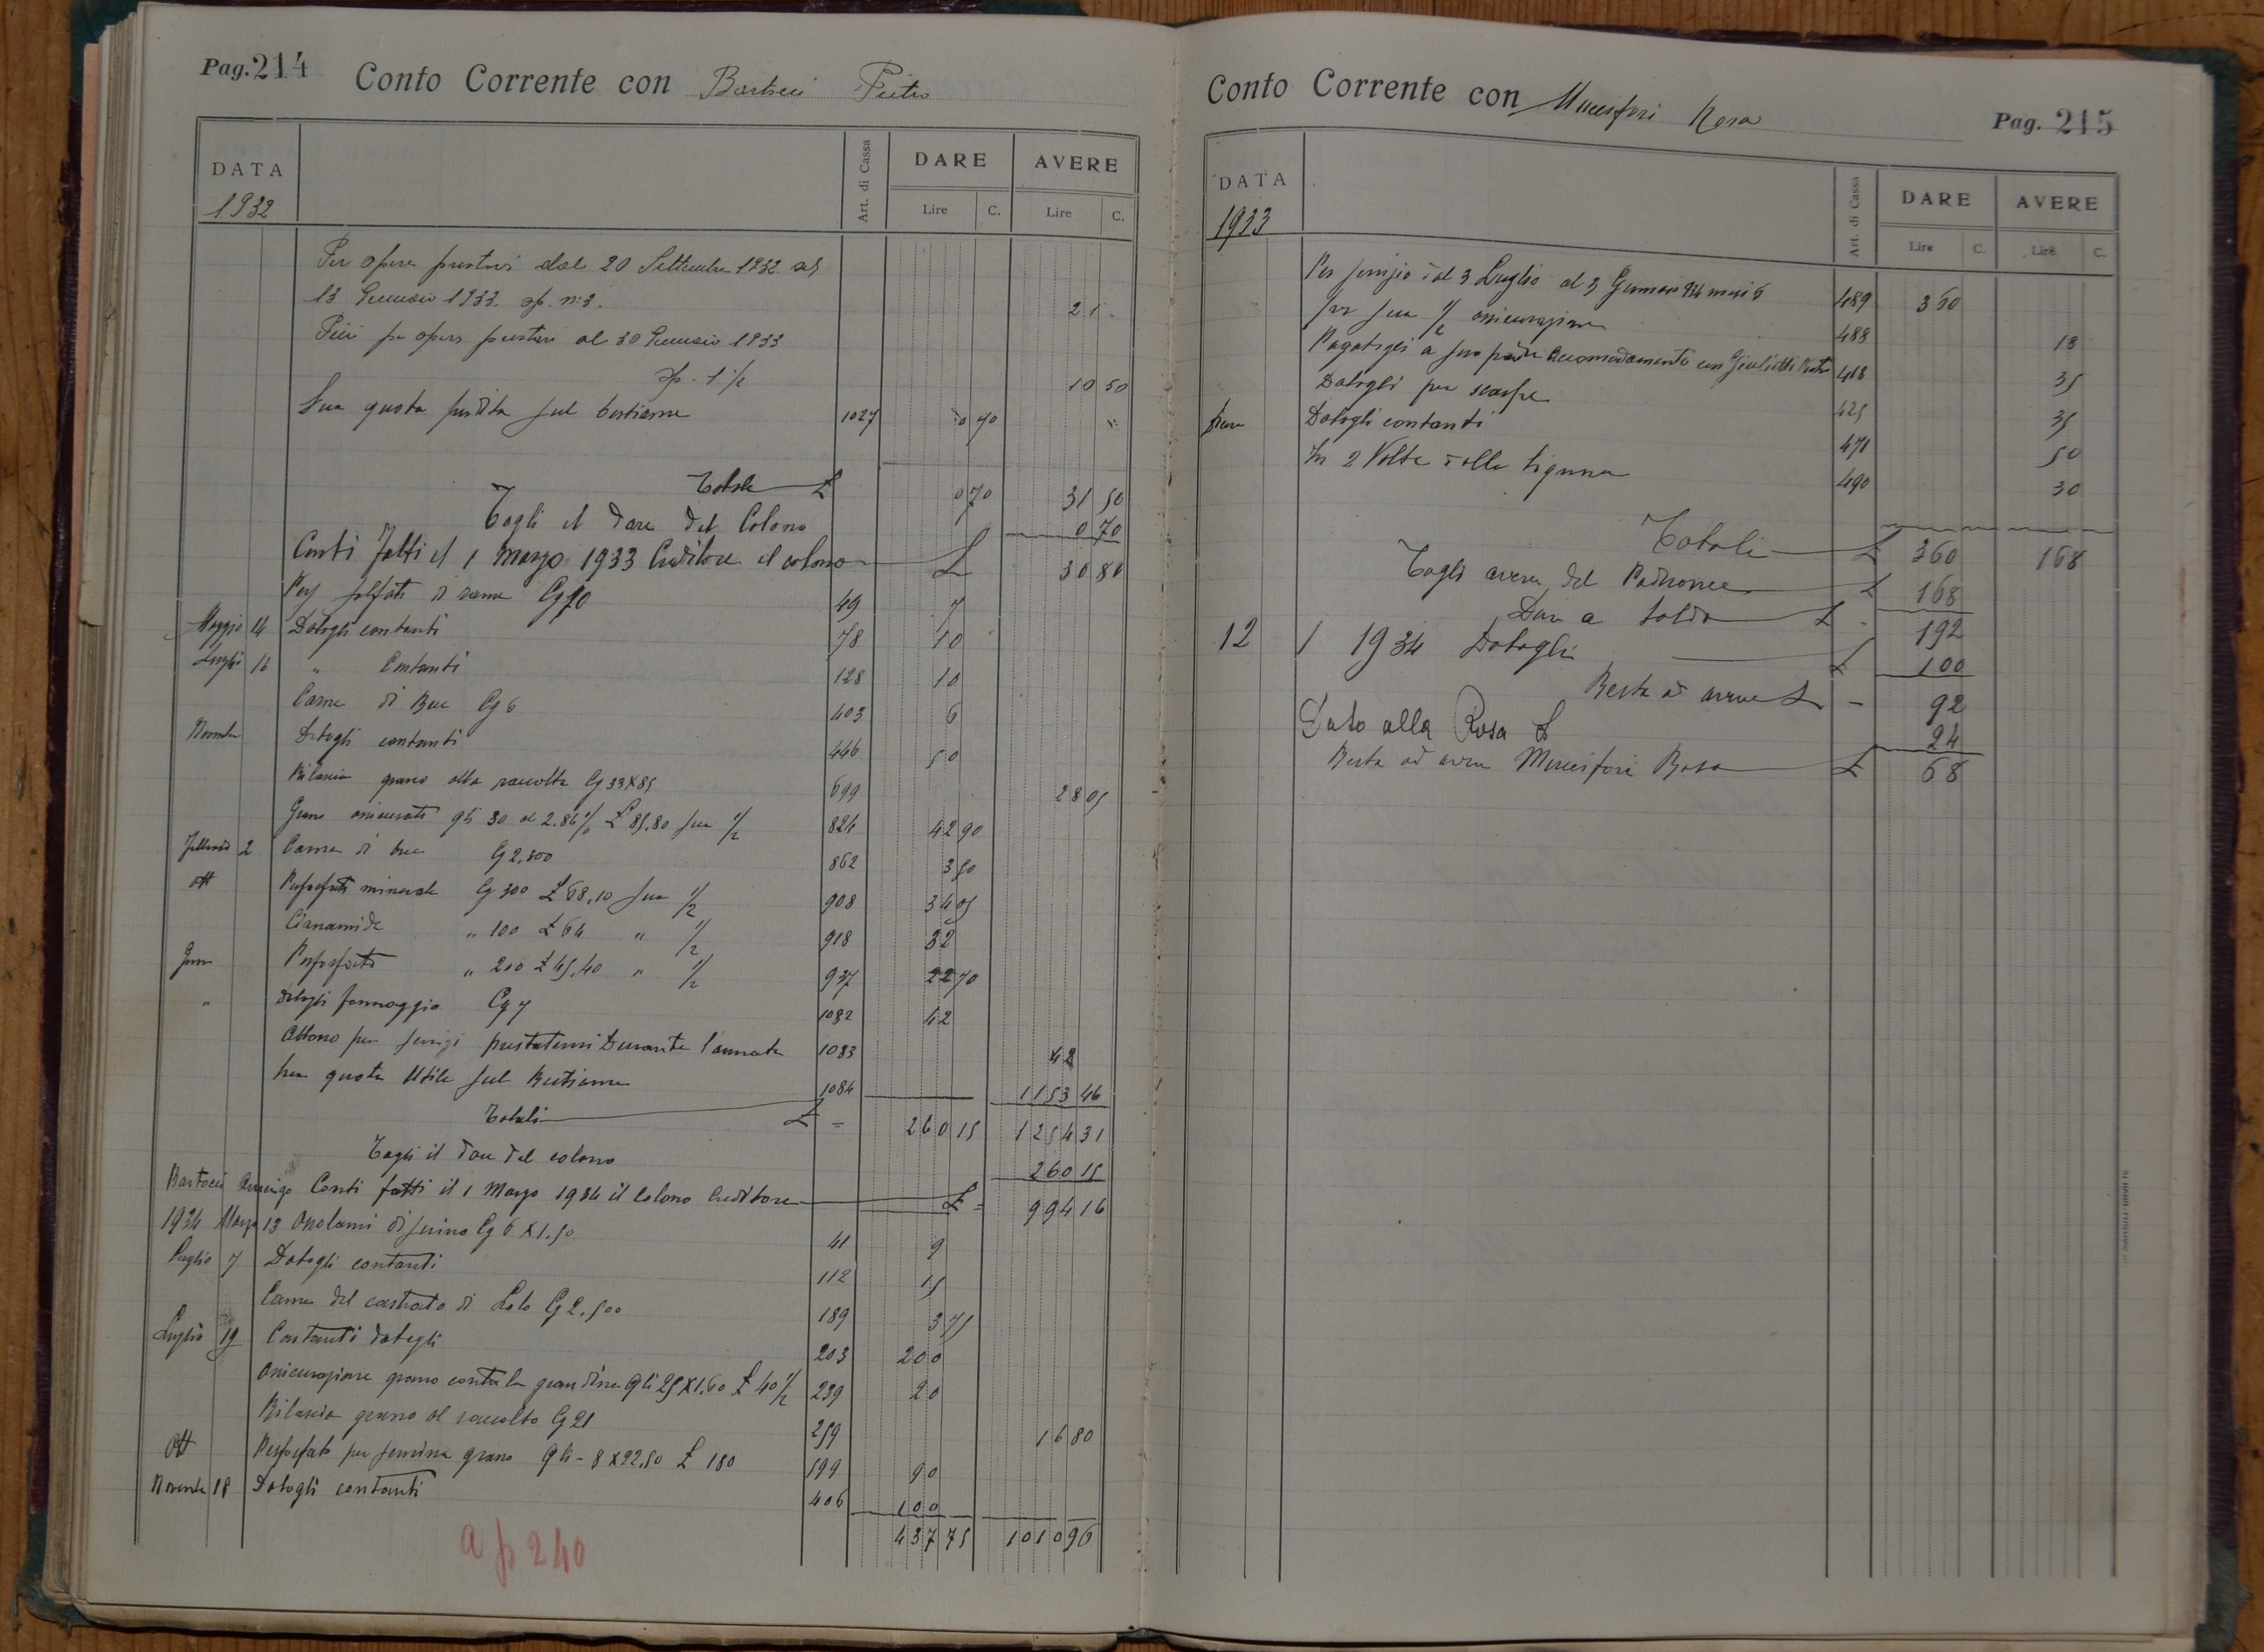 Pag. 214
Conto Corrente con Bartocci Pietro
DATA
1932
Art. di Cassa
DARE
AVERE
Lire C.
Lire C.
Per opere prestatemi dal 20 Settembre 1932 al
13 Gennaio 1933 op. n: 3. 21
Più per opere prestatemi al 30 Gennaio 1933
op. 1 ½ 10 50
Sua quota perdita sul bestiame 1027 0 70
Totale £ 0 70 31 50
Togli il dare del Colono 0 70
Conti fatti il 1 Marzo 1933 Creditore il colono £ 30 80
Per solfato di rame 49 7
Maggio 14 Datogli contanti 78 10
Luglio 16 " Contanti 128 10
Carne di Bue Cg 6 403 6
Novembre Datogli contanti 446 50
Bilancia grano alla raccolta Cg 33 X 85 699 28 05
Grano assicurato qli 30 al 2.86 % £ 85.80 sua ½ 824 42 90
2 Carne di bue Cg 2,300 862 3 50
Ott Perfosfato minerale Cg 300 £ 68,10 sua ½ 908 34 05
Cianamide " 100 £ 64 " ½ 918 32
Genn Perfosfato " 200 £ 45.40 " ½ 937 22 70
" Datogli formaggio Cg 7 1082 42
Abbono per servizi prestatemi durante l'annata 1083 42
Sua quota Utile sul Bestiame 1084 1153 46
Totali £ = 260 15 1254 31
Togli il dare del colono 260 15
Bartocci Conti fatti il 1 Marzo 1934 il Colono Creditore £ = 994 16
1934 Marzo 13 di suino Cg 6 X 1.50 41 9
Luglio 7 Datogli contanti 112 15
Carne del castrato di Lolo Cg 2.500 189 3 75
Luglio 19 Contanti datogli 203 200
Assicurazione grano contro la grandine qli 25 X 1.60 £ 40 ½ 239 20
Bilancia grano al raccolto Cg 21 259 16 80
Ott Perfosfato per semina grano qli - 8 X 22,50 £ 180 399 90
Novembre 18 Datogli contanti 406 100
437 75 1010 96
a p 240
Conto Corrente con Rosa
Pag. 215
DATA
1933
Art. di Cassa
DARE
AVERE
Lire C.
Lire C.
Per servizio dal 3 Luglio al 3 Gennaio 934 mesi 6 489 360
per sua ½ assicurazione 488 18
Pagatogli a suo padre accomodamento con Giulietti 418 35
Datogli per scarpe 425 35
Datogli contanti 471 50
In 2 Volte dalla Signora 490 30
Totali £ 360 168
Togli avere del Padrone £ 168
Dare a saldo £ 192
12 1 1934 Datogli £ 100
Resta ad avere £ - 92
Dato alla Rosa £ 24
Resta ad avere Rosa £ 68